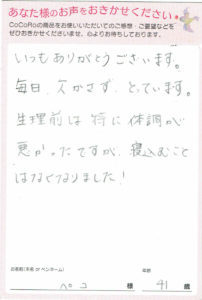 あなた様のお声をおきかせください。
CoCoRoの商品をお使いいただいてのご感想・ご要望などを
ぜひおきかせくださいませ。心よりお待ちしております。
いつもありがとうございます。
毎日、欠かさず、とっています。
生理前は特に体調が
悪かったですが、寝込むこと
はなくなりました！
お名前(本名 or ペンネーム)
ペコ 様
年齢
41 歳